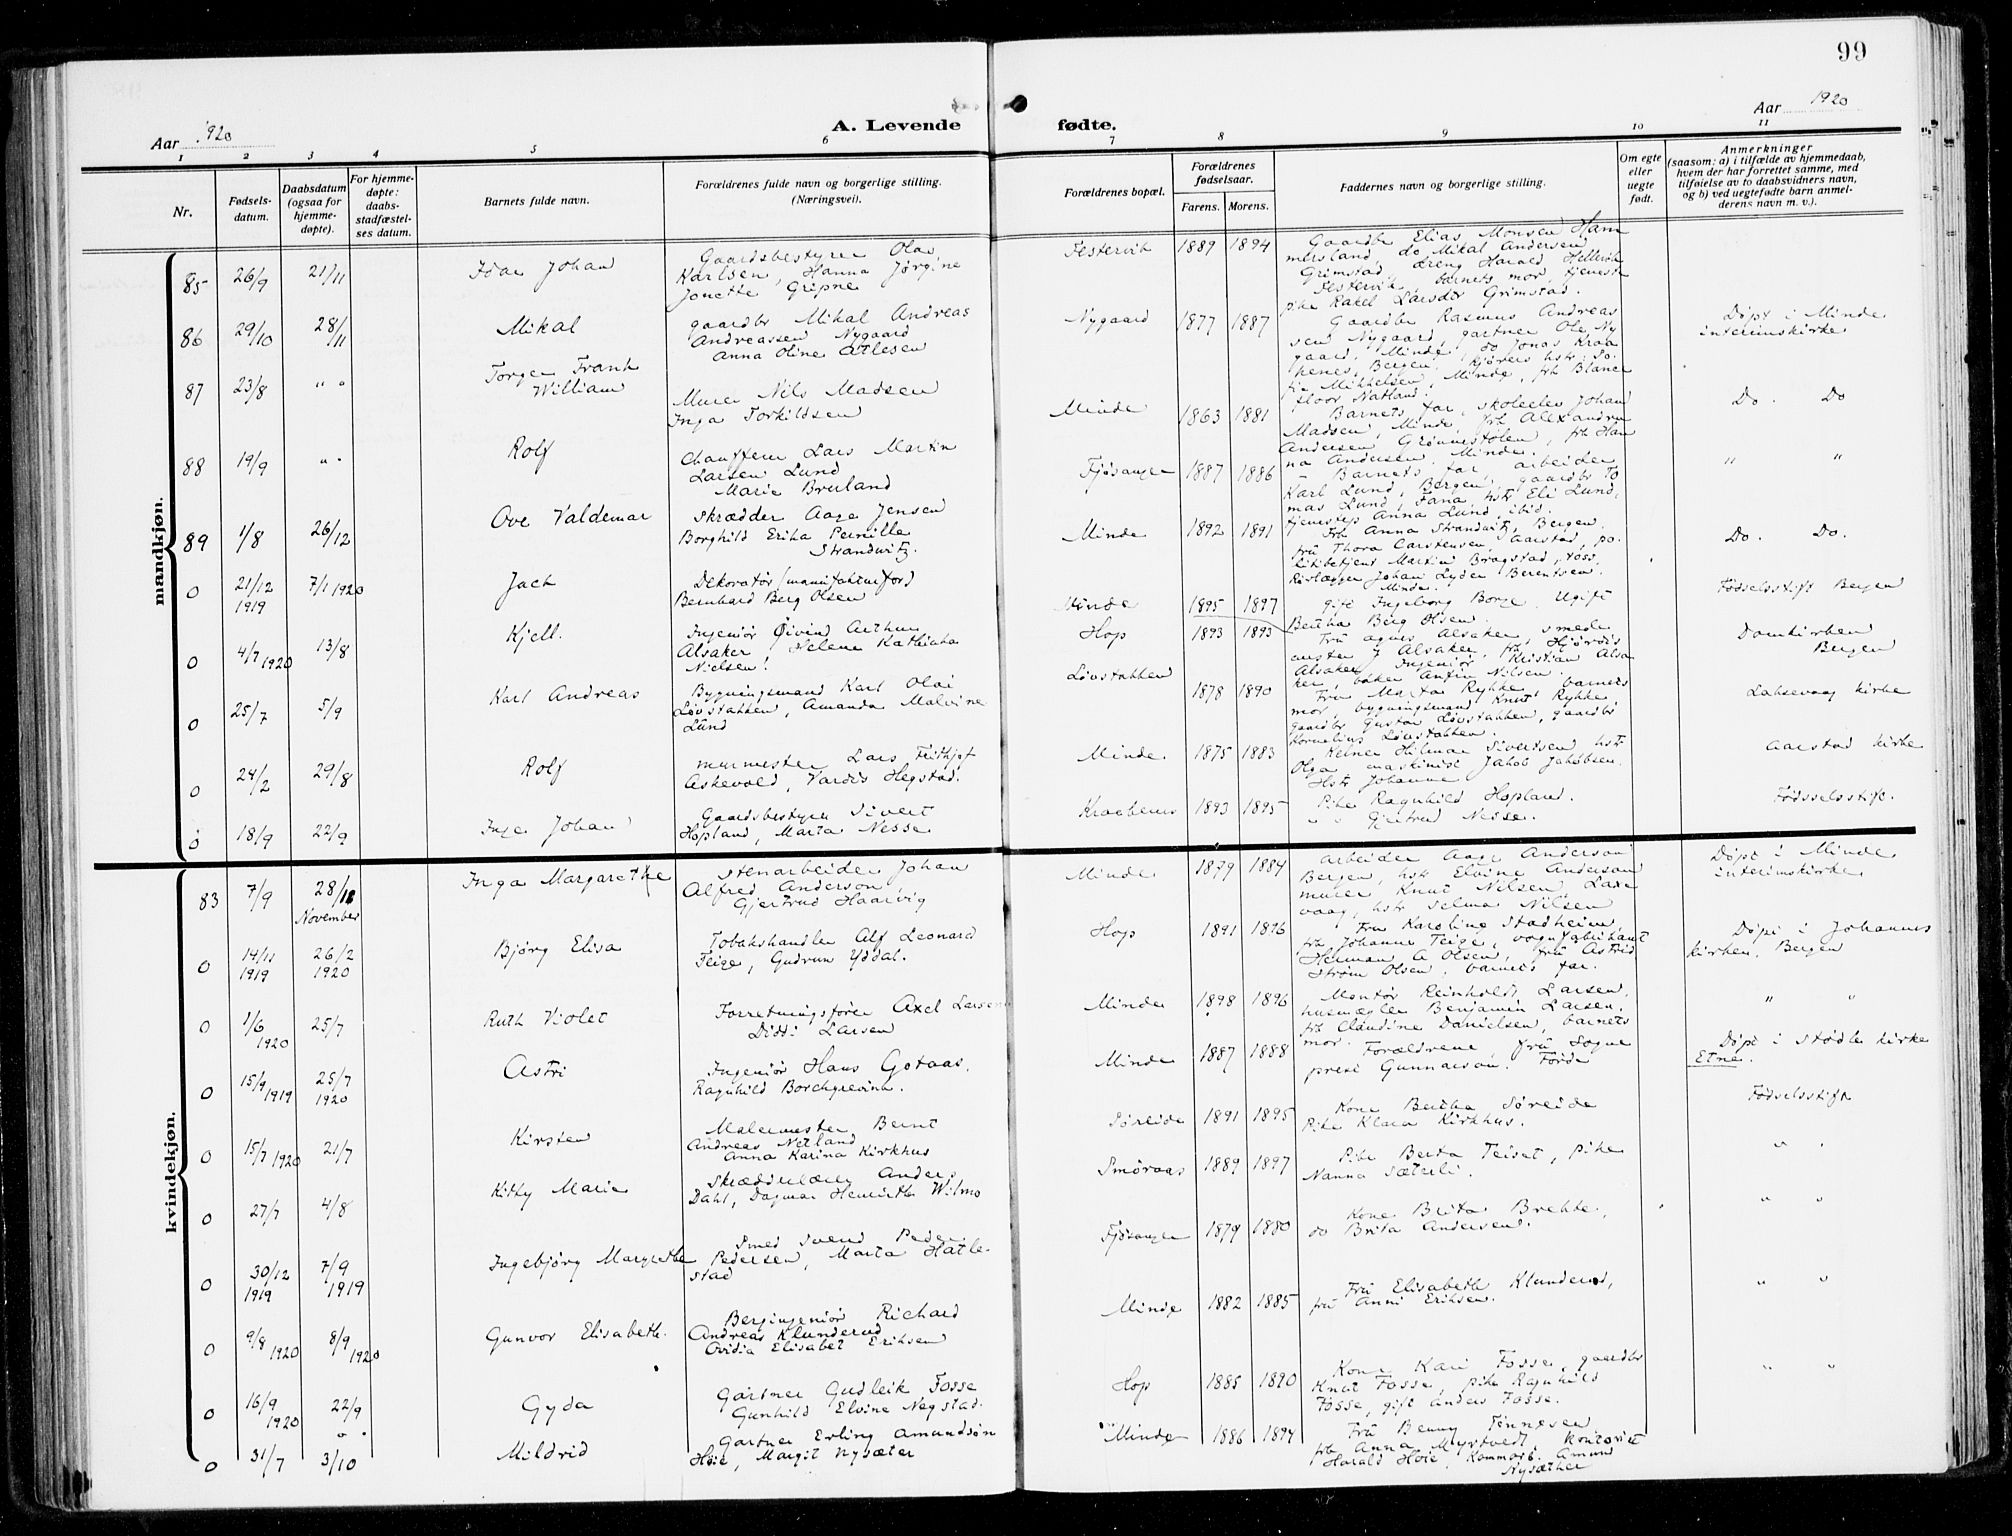 99
Aar 1920
A. Levende fødte.
Aar 1920
1 2 3 4 5 6 7 8 9 10 11
Nr.
Fødsels-
datum.
Daabsdatum
(ogsaa for
hjemme-
døpte).
For hjemme-
døpte:
daabs-
stadfæstel-
ses datum.
Barnets fulde navn.
Forældrenes fulde navn og borgerlige stilling.
(Næringsvei).
Forældrenes bopæl.
Forældrenes
fødselsaar.
Farens. Morens.
Faddernes navn og borgerlige stilling.
Om egte
eller
uegte
født.
Anmerkninger
(saasom: a) i tilfælde av hjemmedaab,
hvem der har forrettet samme, med
tilføielse av to daabsvidners navn,
og b) ved uegtefødte barn anmel-
derens navn m. v.).
mandkjøn.
85 26/9 21/11 Johan
Gaardsbestyrer Olai
Karlsen, Hanna Jørgine
Jonette Gripne
Festervik 1889 1894
Gaardbr Elias Monsen Ham
mersland, do Mikal Andersen
Grimstad, dreng Harald Hellevik
Festervik, barnets mor, tjeneste
pike Rakel Larsdtr Grimstad.
86 29/10 28/11 Mikal
gaardbr Mikal Andreas
Andreassen Nygaard
Anna Oline Atlesen
Nygaard 1877 1887
Gaardbr Rasmus Andreas
sen Nygaard, gartner Ole Ny
gaard, Minde, do Jonas Kraa
kenes, Bergen, kjørers hstr. So.
fie Mikkelsen, Minde, frk Blance
floor Natland.
Døpt i Minde
interimskirke
87 23/8 " " Torger Frank
William
Murer Nils Madsen
Inga Torkildsen
Minde 1863 1881
Barnets far, skoleelev Johan
Madsen, Minde, frk Alexandra
Andersen Grønnestølen, frk Han
na Andersen, Minde.
Do. Do
88 19/9 " " Rolf
Chauffeur Lars Martin
Larsen Lund
Marie Bruland
Fjøsanger 1887 1886
Barnets far, arbeider
Karl Lund, Bergen, gaardbr To
mas Lund, Fana, hstr Eli Lund,
tjenestep Anna Lund, ibid.
" "
89 1/8 26/12 Ove Valdemar
Skrædder Aage Jensen
Borghild Erika Pernille
Strandvitz.
Minde 1892 1891
Frk Anna Strandvitz, Bergen.
fru Thora Carstensen, Aarstad, po.
litibetjent Martin Bragstad,
Johan Lyder Berentsen.
Minde.
Do. Do.
0 21/12 1919 7/1 1920 Jack
Dekoratør (manufakturfor)
Bernhard Berg Olsen
Minde 1895 1897
gift Ingeborg Borge. Ugift
Bertha Berg Olsen.
Fødselsstift Bergen
0 4/7 1920 13/8 Kjell.
Ingeniør Øivind Arthur
Alsaker, Helene Kathinka
Nielsen.
Hop 1893 1893
Fru Agnes Alsaker, smede
mester J Alsaker, frk Hjørdis
Alsaker, Ingeniør Kristian Alsa
ker, Anfin Nilsen.
Domkirken
Bergen
0 25/7 5/9 Karl Andreas
Bygningsmand Karl Olai
Løvstakken, Amanda Malvine
Lund
Løvstakken 1878 1890
Fru Marta Rykke, barnets
mor, bygningsmand Knut Rykke
gaardbr Gustav Løvstakken, gaardbr
Kornelius Løvstakken.
Laksevaag kirke
0 24/2 29/8 Rolf
murmester Lars Fridthjof
Askevold, Vardis Hegstad.
Minde 1875 1883
Kelner Hilmar Sivertsen hstr
Olga maskinist Jakob Jakobsen.
Hstr Johanne
Aarstad kirke
0 18/9 22/9 Inge Johan
Gaardsbestyrer Sivert
Hopland, Marta Nesse
Kraakenes 1893 1895
Pike Ragnhild Hopland.
" " Gjertrud Nesse.
Fødselsstift.
kvindekjøn.
83 7/9 28/11 November Inga Margarethe
Stenarbeider Johan
Alfred Anderson
Gjertrud Haarvig
Minde 1879 1884
Arbeider Aage Anderson
Bergen, hstr Elvine Anderson
murer Knut Nilsen, Laxe
vaag, hstr Selma Nilsen
Døpt i Minde
interimskirke
0 14/11 1919 26/2 1920 Bjørg Elisa
Tobakshandler Alf Leonard
Teige, Gudrun Yddal.
Hop 1891 1896
Fru Karoline Stadheim,
frk Johanne Teige, vognfabrikant
Herman A Olsen, fru Astrid
Strøm Olsen, barnets far.
Døpt i Johannes
kirken, Bergen
0 1/6 1920 25/7 Ruth Violet
Forretningsfører Axel Larsen
Diddi Larsen
Minde 1898 1896
Montør Reinholdt Larsen,
husmægler Benjamin Larsen,
frk Claudine Danielsen, barnets
mor.
" "
0 15/9 1919 25/7 1920 Astri
Ingeniør Hans Gotaas.
Ragnhild Borchgrevink.
Minde 1887 1888
Forældrene, fru Sogne
prest Gunnarson. Førde
Døpt i Stødle kirke
Etne.
0 15/7 1920 21/7 Kirsten
Malermester Bernt
Andreas Netland
Anna Karina Kirkhus
Søreide 1891 1895
Kone Bertha Søreide
Pike Klara Kirkhus.
Fødselsstift
0 27/7 4/8 Kitty Marie
Anders
Dahl, Dagmar Henriette Wilmo
Smøraas 1889 1897
Pike Berta Teiset, pike
Nanna Sæterli.
" "
0 30/12 1919 7/9 1919 Ingebjørg Margrethe
Smed Svend Peder
Pedersen, Marta Hatle-
stad
Fjøsanger 1879 1880
Kone Brita Brekke,
do Brita Andersen.
" "
0 9/8 1920 8/9 1920 Gunvor Elisabeth.
Bergingeniør Richard
Andreas Klunderud
Ovidia Elisabet Eriksen
Minde 1882 1885
Fru Elisabeth Klunderud,
fru Anni Eriksen.
" "
0 16/9 1920 22/9 Gyda
Gartner Gudleik Fosse
Gunhild Elvine Negstad.
Hop 1885 1890
Kone Kari Fosse, gaardbr
Knut Fosse, pike Ragnhild
Fosse, gift Anders Fosse.
" "
0 31/7 3/10 Mildrid
Gartner Erling Amundsøn
Høie, Margit Nysæter
Minde 1886 1894
Fru Benny Tennesen
frk Anna Myrtvedt, kontorist
Harald Høie, Amund
Nysæther